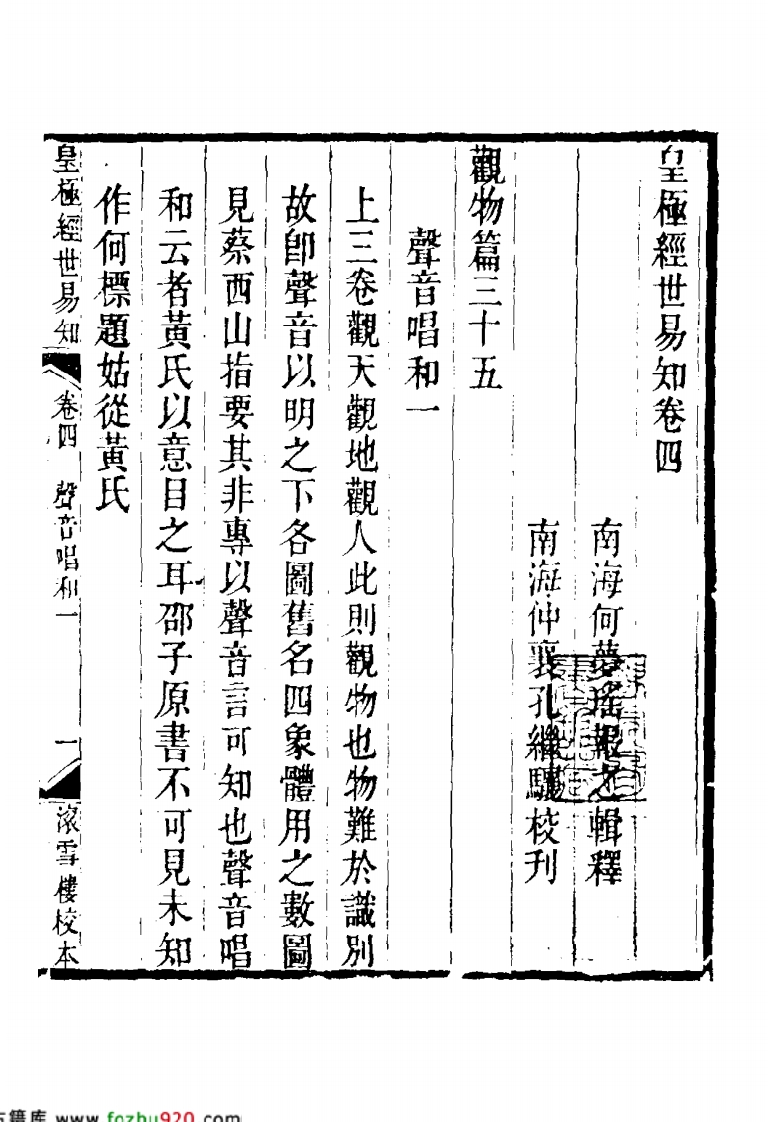 皇極經世易知卷四
南海何夢瑤報之輯釋
南海仲襄孔繼驤校刊
觀物篇三十五
聲音唱和一
上三卷觀天觀地觀人此則觀物也物難於識別
故卽聲音以明之下各圖舊名四象體用之數圖
見蔡西山指要其非專以聲音言可知也聲音唱
和云者黃氏以意目之耳邵子原書不可見未知
作何標題姑從黃氏
皇極經世易知 卷四 聲音唱和一 一 滾雪樓校本
古籍库 www.fozhu920.com